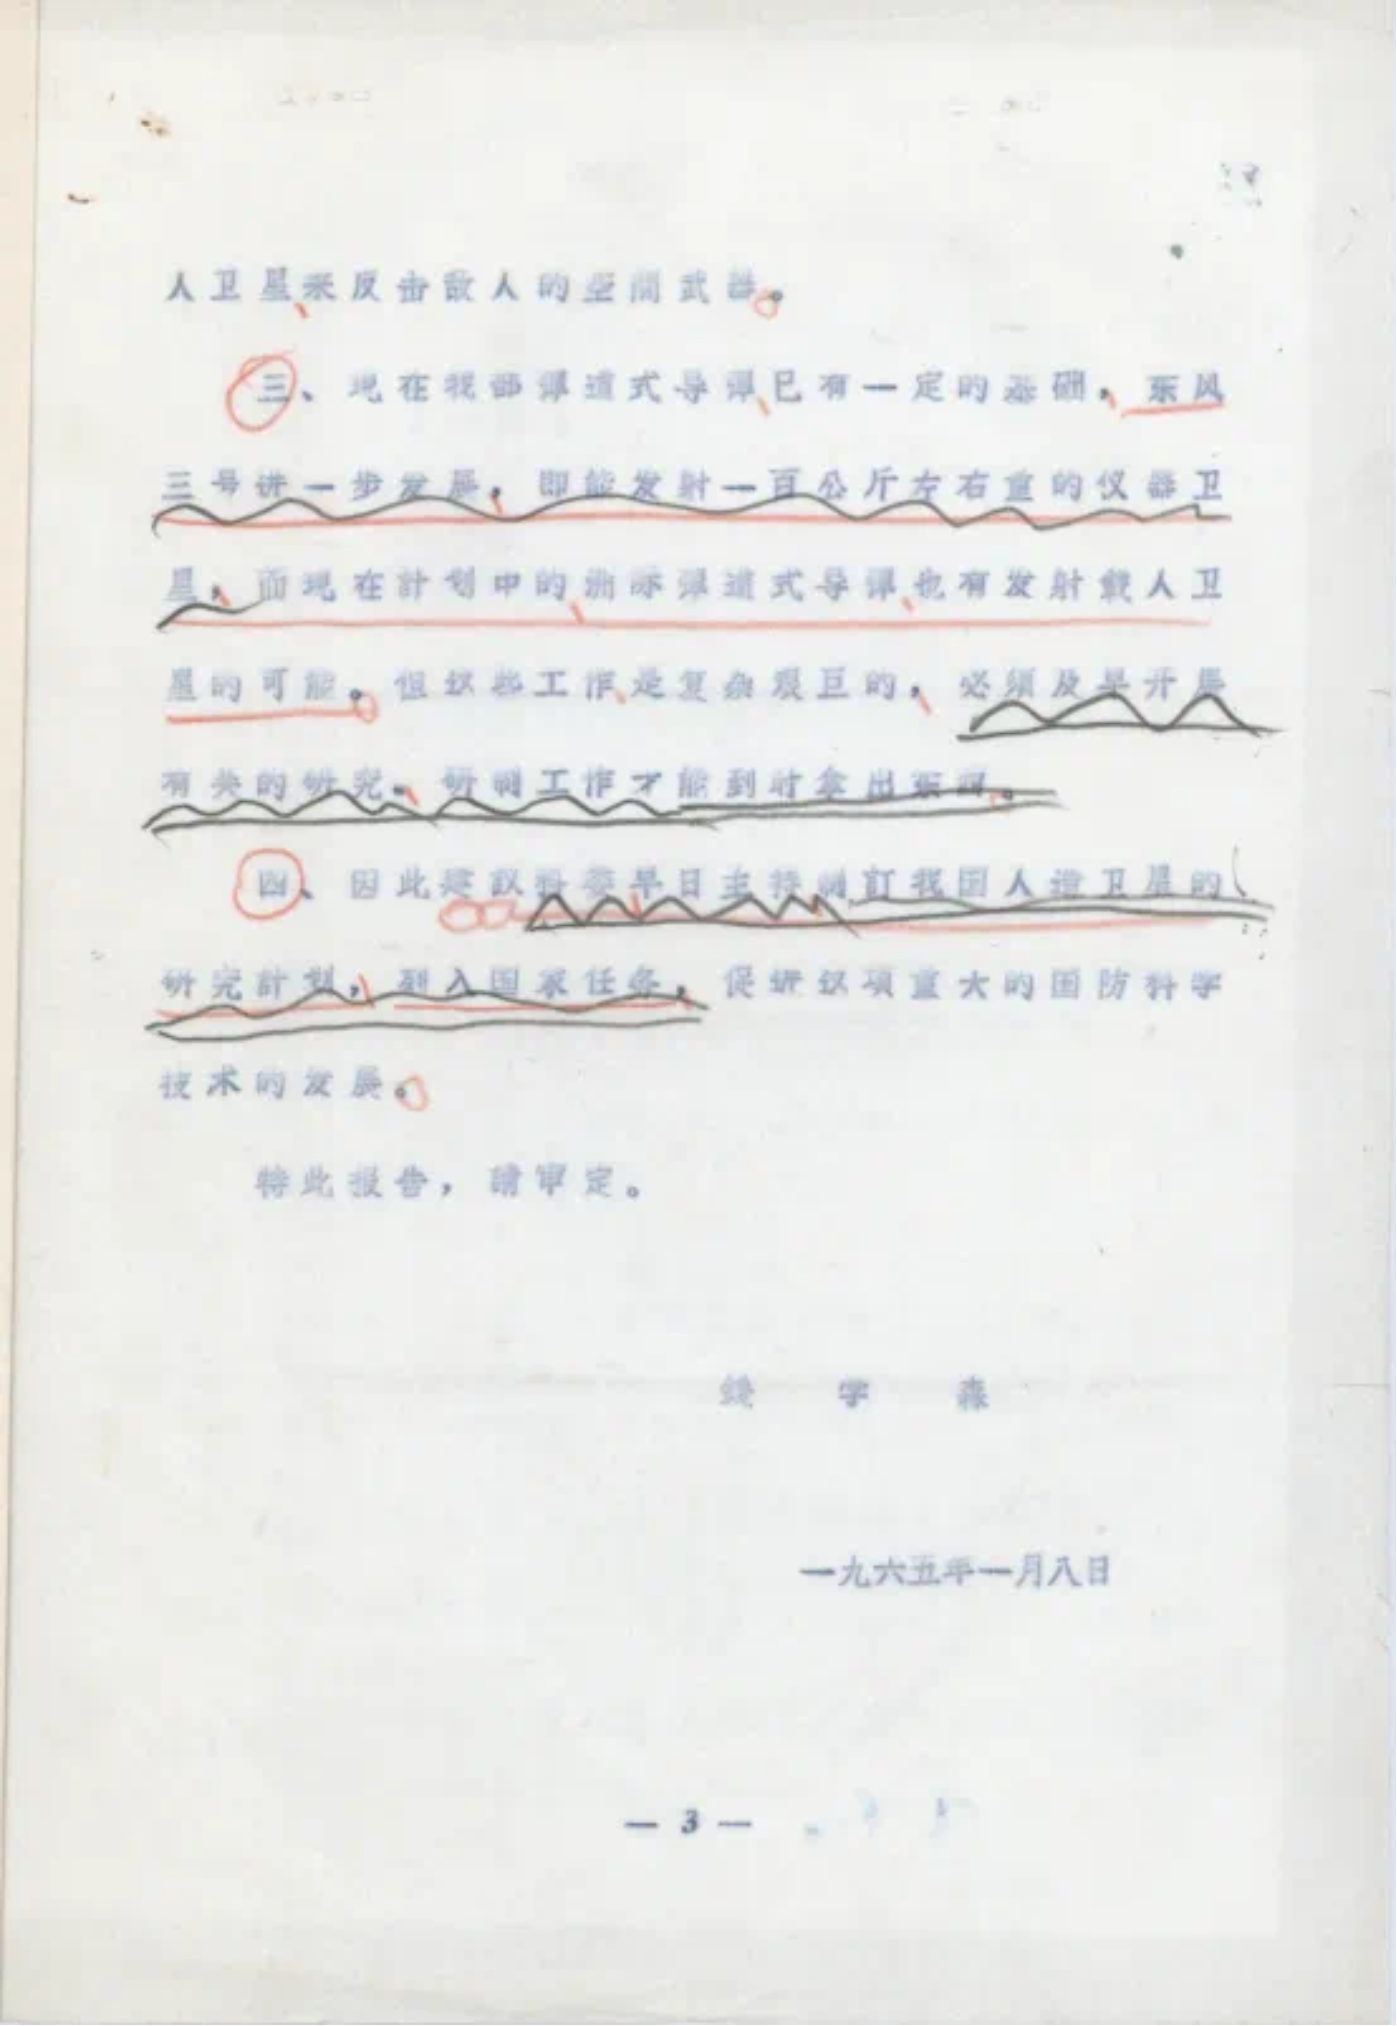 人卫星来反击敌人的空间武器。
三、现在我部弹道式导弹已有一定的基础，东风
三号进一步发展，即能发射一百公斤左右重的仪器卫
星，而现在計划中的洲际弹道式导弹也有发射載人卫
星的可能。但这些工作是复杂艰巨的，必须及早开展
有关的研究、研制工作才能到时拿出东西。
四、因此建议科委早日主持制訂我国人造卫星的
研究計划，列入国家任务，促进这项重大的国防科学
技术的发展。
特此报告，請审定。
錢 学 森
一九六五年一月八日
— 3 —